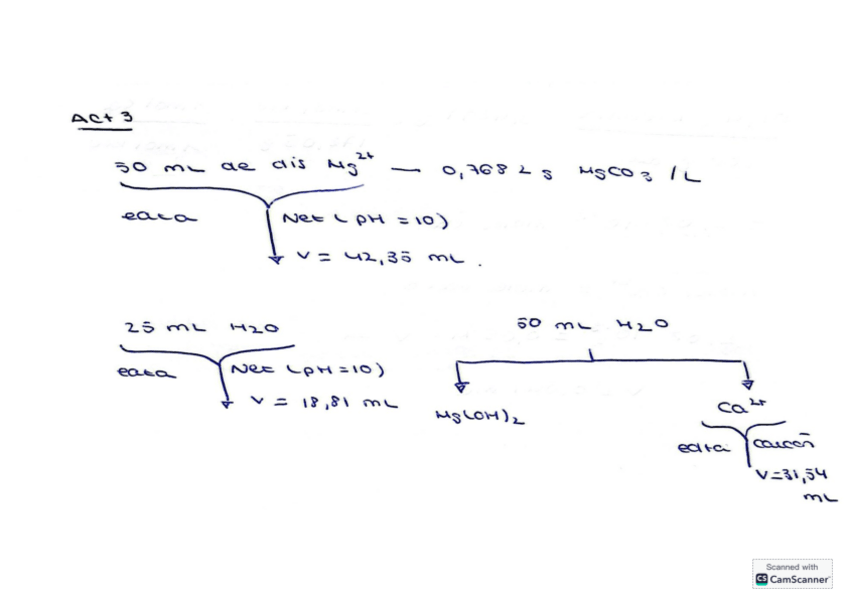 Act 3
50 mL de dis Mg2+ — 0,7682 g MgCO3 / L
edta
Net (pH = 10)
V = 42,35 mL.
25 mL H2O
edta
Net (pH = 10)
V = 18,81 mL
50 mL H2O
Mg(OH)2
Ca2+
edta
calcón
V = 31,54
mL
Scanned with
CS CamScanner